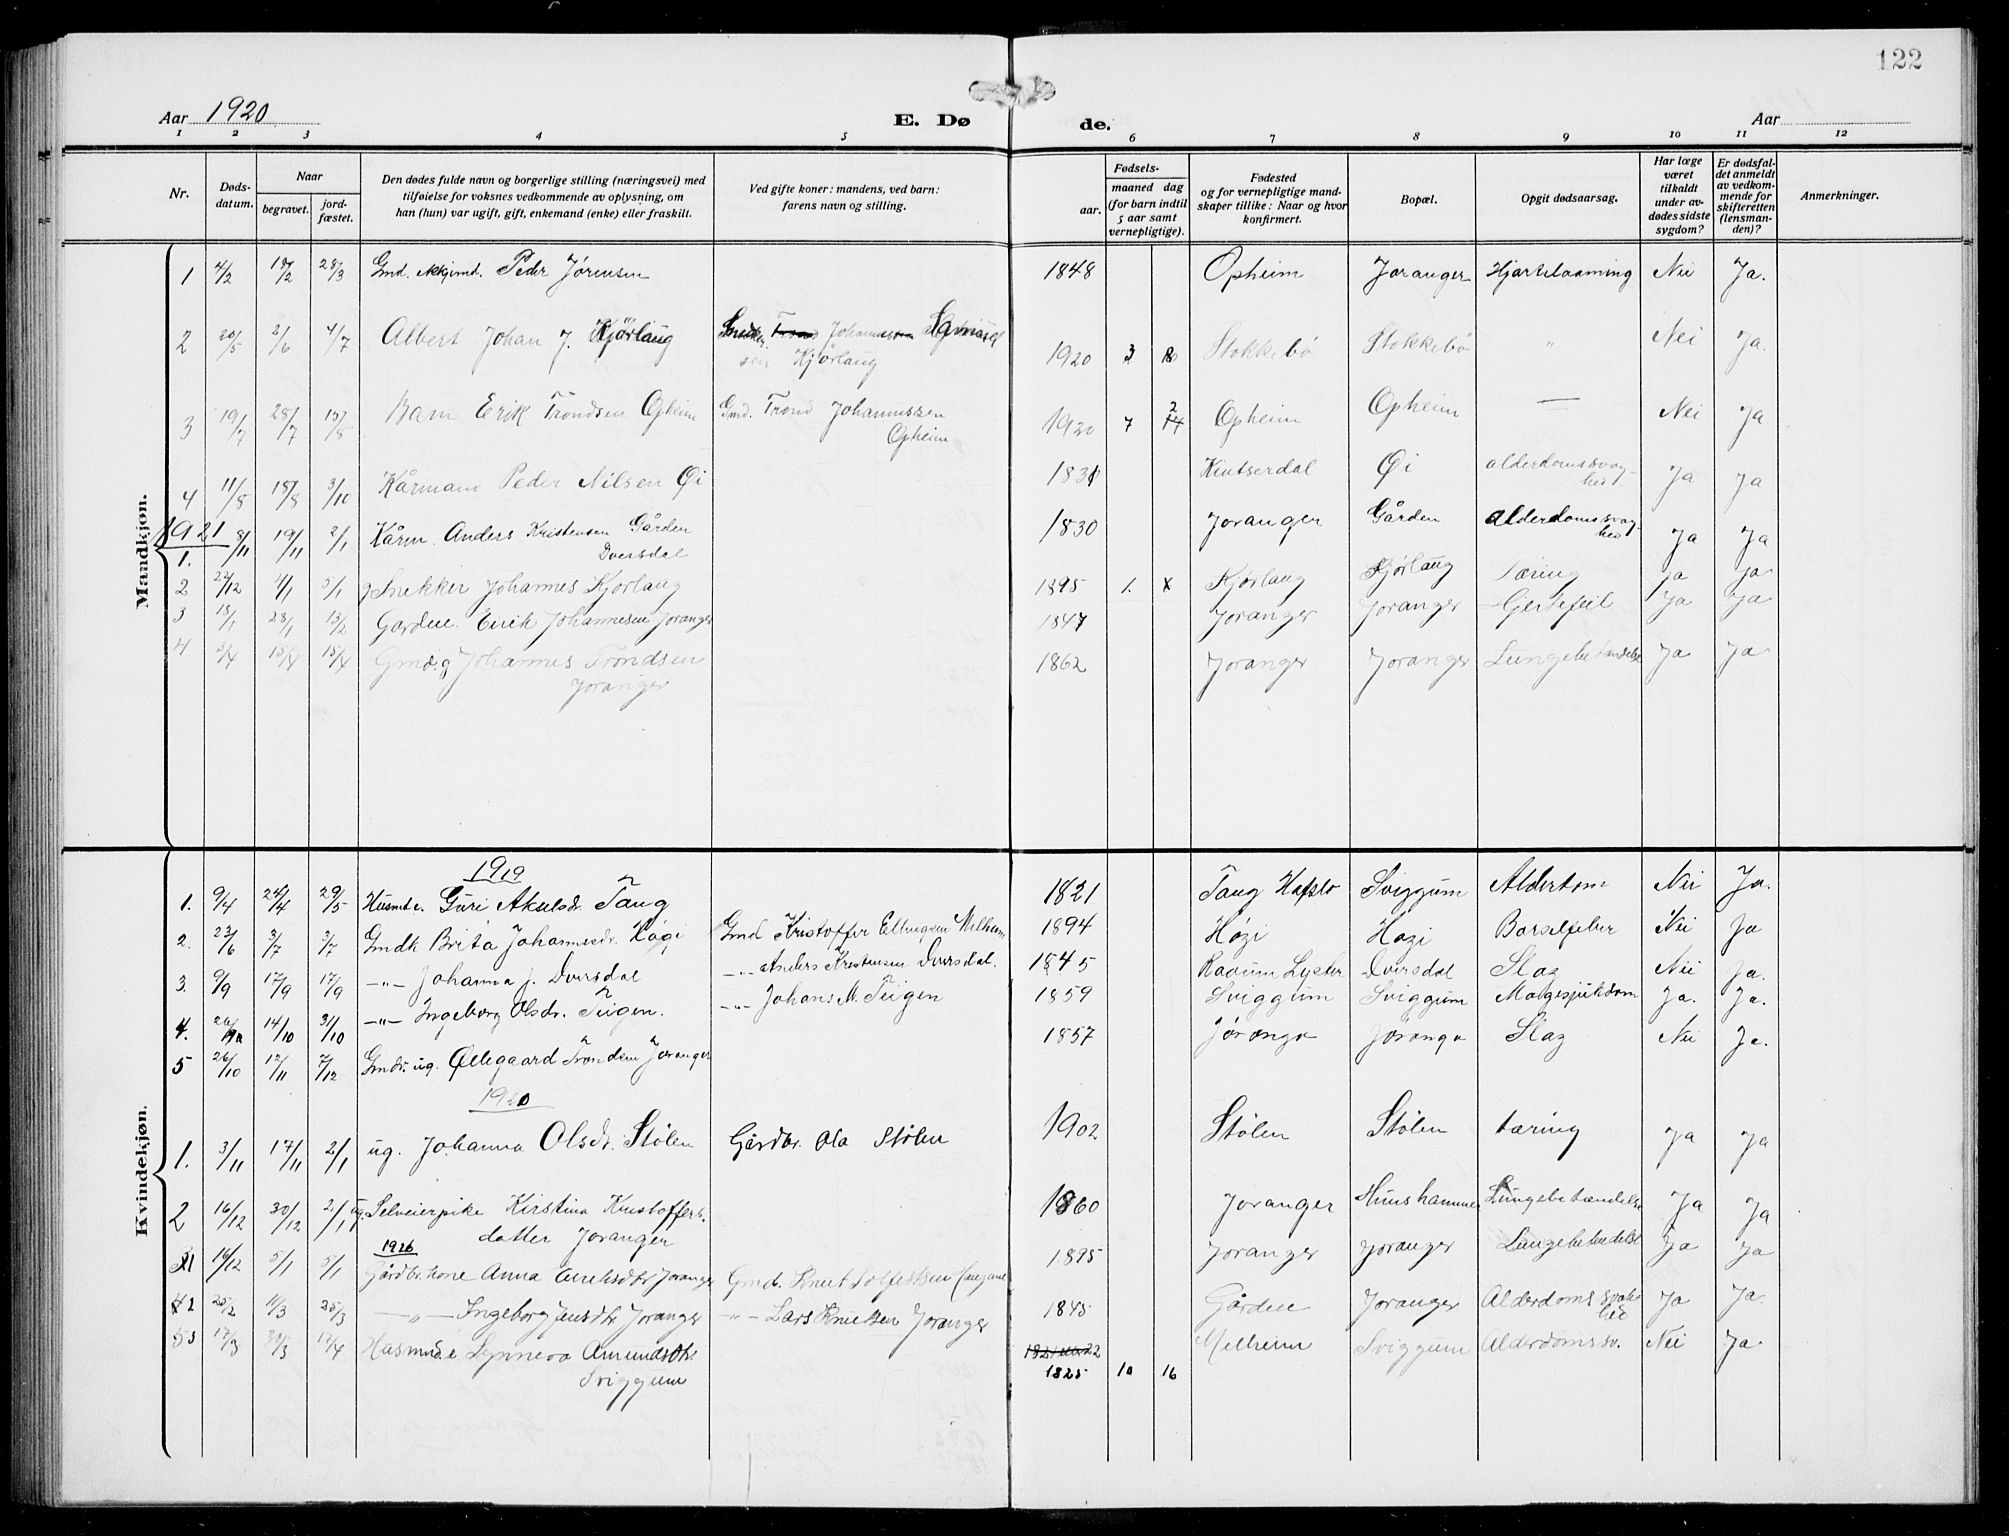 122
Aar 1920
E. Dø
de.
Aar
1 2 3 4 5 6 7 8 9 10 11 12
Nr.
Døds-
datum.
Naar
begravet.
jord-
fæstet.
Den dødes fulde navn og borgerlige stilling (næringsvei) med
tilføielse for voksnes vedkommende av oplysning, om
han (hun) var ugift, gift, enkemand (enke) eller fraskilt.
Ved gifte koner: mandens, ved barn:
farens navn og stilling.
Fødsels-
aar.
maaned dag
(for barn indtil
5 aar samt
vernepligtige).
Fødested
og for vernepligtige mand-
skaper tillike: Naar og hvor
konfirmert.
Bopæl.
Opgit dødsaarsag.
Har læge
været
tilkaldt
under av-
dødes sidste
sygdom?
Er dødsfal-
det anmeldt
av vedkom-
mende for
skifteretten
(lensman-
den)?
Anmerkninger.
Mandkjøn.
1 4/2 18/2 28/3 Gmd. Peder Jørensen 1848 Opheim Joranger Hjartelaaming Nei Ja.
2 20/5 2/6 4/7 Albert Johan J. Kjørlaug Snekker Trond Johannessen 1920 3 Stokkebø Stokkebø " Nei Ja.
sen Kjørlaug
3 19/7 28/7 15/8 Barn Erik Trondsen Opheim Gmd. Trond Johannessen 1920 7 2 14 Opheim Opheim — Nei Ja
Opheim
4 11/8 18/8 3/10 Kårmand Peder Nilsen Øi 1831 Kintserdal Øi alderdomssvag-
hed Ja Ja
1921
1. 8/11 19/11 2/1 Kårm. Anders Kristensen Gården 1830 Joranger Gården alderdomssvag-
Dversdal hed Ja Ja
2 22/12 4/1 5/1 g Snekker Johannes Kjørlaug 1895 1. Kjørlaug Kjørlaug Tæring Ja Ja
3 18/1 28/1 13/2 Gardm. Erik Johannesen Joranger 1847 Joranger Joranger Gjertefeil Ja Ja
4 5/4 15/4 15/4 Gmd. g Johannes Trondsen 1862 Joranger Joranger Lungebetændelse Ja Ja
Joranger
Kvindekjøn.
1919
1. 9/4 24/4 29/5 Husmd e. Guri Akselsdr. Tang 1821 Tang Hafslo Sviggum Alderdom Nei Ja.
2. 23/6 3/7 3/7 Gmdk Brita Johannesdr. Høgi Gmd Kristoffer Ellingsen Melheim 1894 Høgi Høgi Barselfeber Nei Ja
3. 9/9 17/9 17/9 —"— Johanna J. Dversdal —"— Anders Kristensen Dversdal. 1845 Ravum Lyster Dversdal Slag Nei Ja.
4. 14/10 31/10 —"— Ingeborg Olsdr. Teigen. —"— Johans M. Teigen 1859 Sviggum Sviggum Magesjukdom Ja. Ja.
5 26/10 12/11 7/12 Gmdr. ug. Øllegaard Trondsen Joranger 1857 Joranger Joranger Slag Nei Ja.
1920
1. 3/11 17/11 2/1 ug. Johanna Olsdr. Stølen Gårdbr. Ola Stølen 1902 Stølen Stølen tæring Ja Ja
2 16/12 30/12 2/1 ug. Selveierpike Kirstina Kristoffers. 1860 Joranger Huushammer Lungebetændelse Ja Ja
datter Joranger
1926
1 16/12 5/1 5/1 Gårdbr. kone Anna Eriksdtr Joranger Gmd. Knut Solfestsen 1895 Joranger Joranger Lungebetendelse Ja Ja
2 25/2 11/3 25/3 —"— Ingeborg Jensdtr Joranger —"— Lars Knutsen Joranger 1845 Gården Joranger Alderdomssvak-
hed Ja Ja
3 17/3 30/3 17/4 Husmd. e Synneva Amundsdtr. Melheim Sviggum Alderdomssv. Nei Ja
Sviggum 1825 10 16